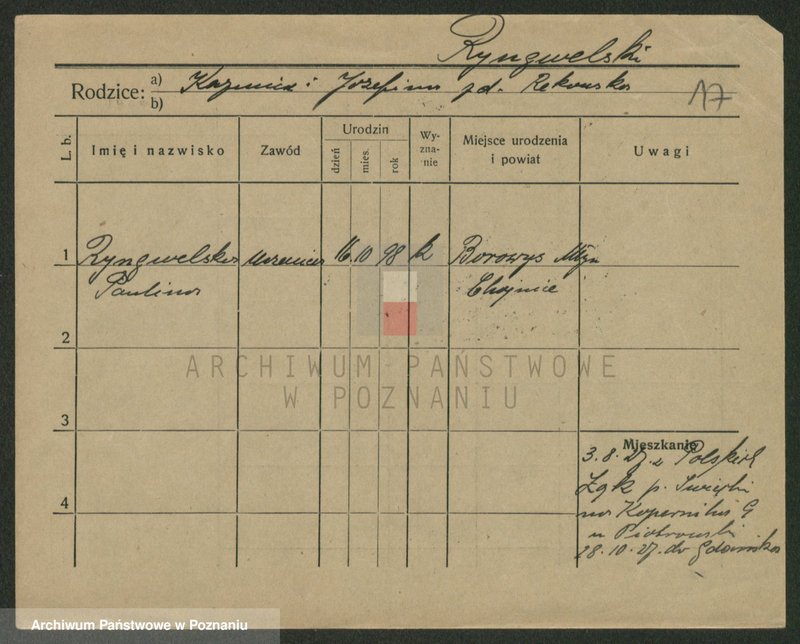 Ryngwelski
Rodzice: a) Kazimierz i Józefina zd. Rekowska
b)
17
L. b.
Imię i nazwisko
Zawód
Urodzin
dzień
mies.
rok
Wy-
zna-
nie
Miejsce urodzenia
i powiat
Uwagi
1 Ryngwelska 16 10 98 k Borowy Młyn
Paulina Chojnice
2
3
4
Mieszkanie
3.8.27. z Polskich
Łąk p. Świecki
na Kopernika 9
u Piotrowski
28.10.27. do Gdańska
ARCHIWUM PAŃSTWOWE
W POZNANIU
Archiwum Państwowe w Poznaniu